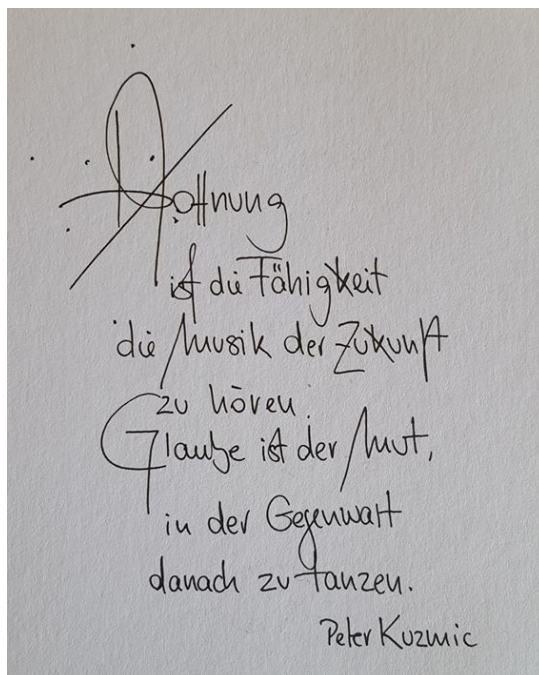 Hoffnung
ist die Fähigkeit
die Musik der Zukunft
zu hören.
Glaube ist der Mut,
in der Gegenwart
danach zu tanzen.
Peter Kuzmic